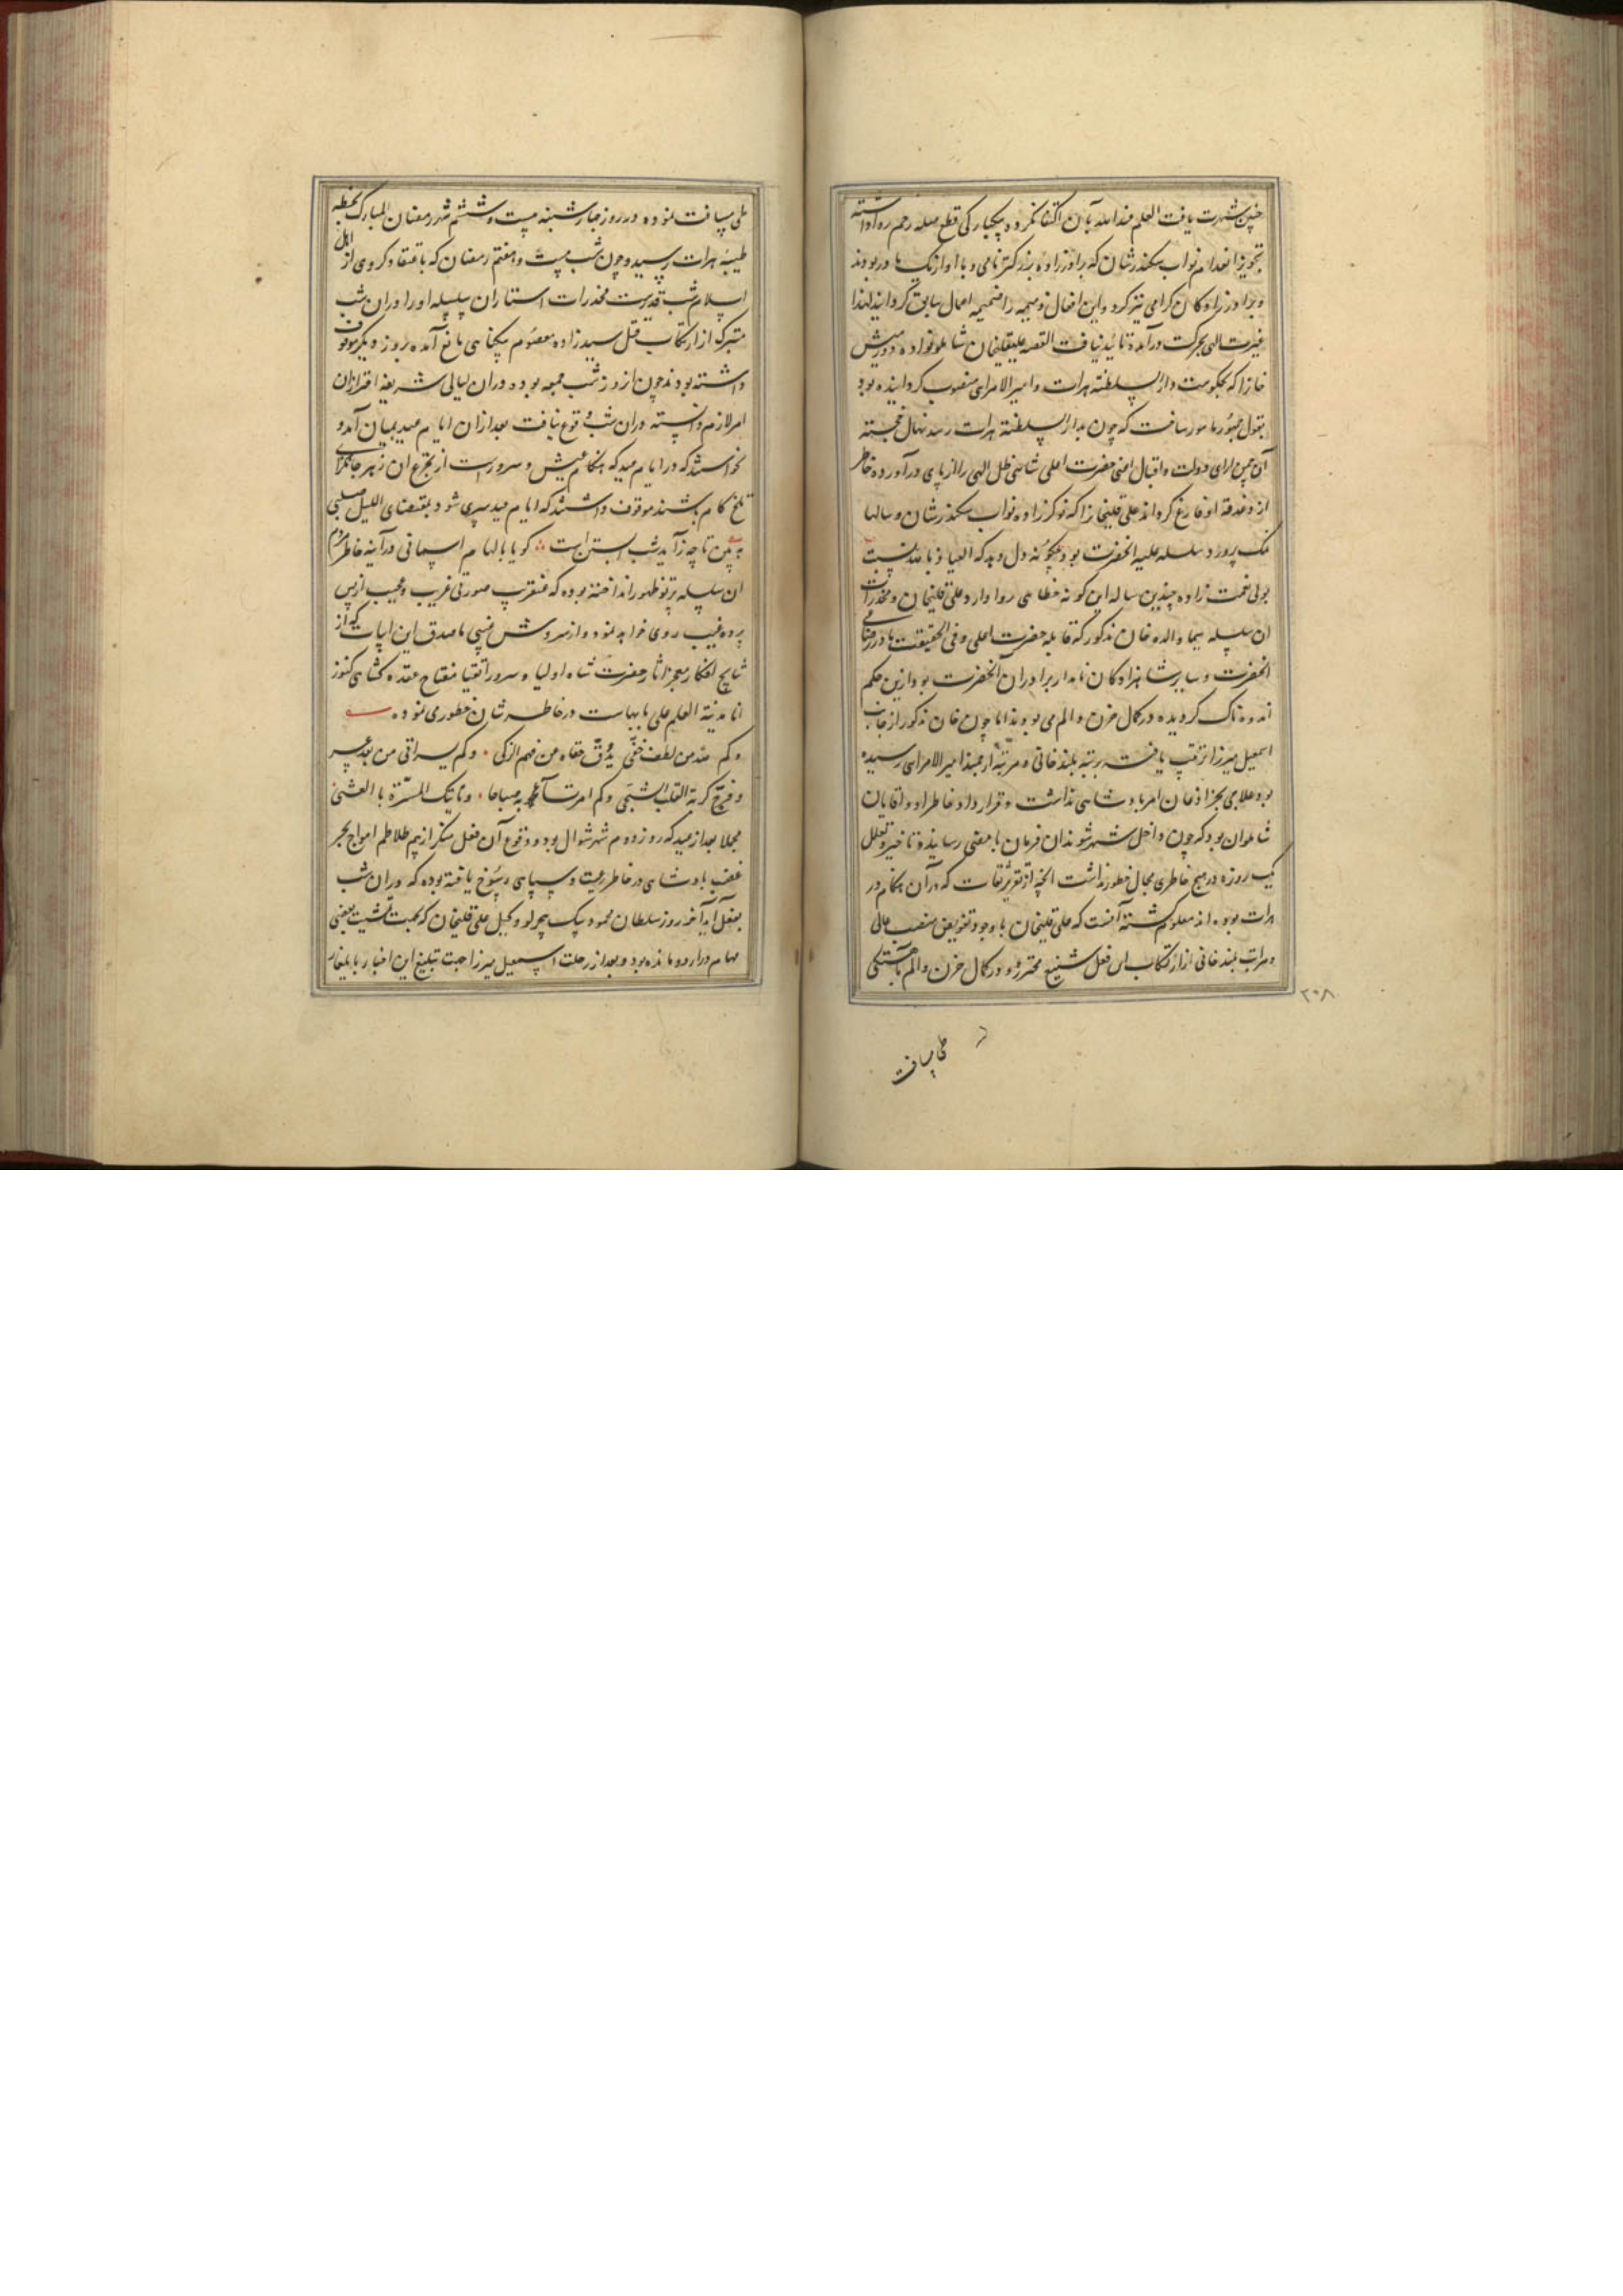 چنین شهرت یافت العلم عند الله بآن اکتفا نکرده بیکبارکی قطع صله رحم روا داشته
تجویز انعدام نواب سکندرشان که برادر بزرکتر نامی و با او از یک مادر بودند
و برادرزادکان کرامی نیز کرد و این افعال ذمیمه را ضمیمه اعمال سابق کردانید لهذا
غیرت الهی بحرکت درآمده تائید نیافت القصه علیقلیخان شاملو نواده دورمیش
خانرا که بحکومت دار السلطنه هرات و امیر الامرای منصوب کردانیده بود
بقول مامور ساخت که چون بدار السلطنه هرات رسد نهال خجسته
آن چمن ارای دولت و اقبال اعنی حضرت اعلی شاهی ظل الهی را از پای درآورده خاطر
از دغدغه او فارغ کرداند علی قلیخانرا که نوکرزاده نواب سکندرشان و سالها
نمک پرورد سلسله علیه آنحضرت بود چکونه دل دهد که العیاذ بالله نسبت
بولی نعمت زاده چندین ساله این کونه خطاهی روا دارد علی قلیخان و مخدرات
ان سلسله سیما والده خان مذکور که قابله حضرت اعلی و فی الحقیقت مادر رضاعی
آنحضرت و سایر شاهزادکان نامدار برادران آنحضرت بود ازین حکم
اندوهناک کردیده در کمال حزن و الم می بودند اما چون خان مذکور از جانب
اسمعیل میرزا ترتیب یافته برتبه بلند خانی و مرتبه ارجمند امیر الامرای رسیده
بود علاجی بجز اذعان امر پادشاهی نداشت و قرارداد خاطر او و اقایان
شاملوان بود که چون داخل شهر شوند ان فرمان بامضی رسانیده تاخیر و تعلل
یک روزه در هیچ خاطری مجال خطور نداشت آنچه از تقریر ثقات که در آن هنکام در
هرات بوده اند معلوم کشته آنست که علی قلیخان با وجود تفویض منصب عالی
و مراتب بلند خانی از ارتکاب این فعل شنیع محترز و در کمال حزن و الم بآهستکی
۲۰۸
طی مسافت
طی مسافت نموده در روز چهارشنبه بیست و ششم شهر رمضان المبارک بخطه
طیبه هرات رسید و چون شب بیست و هفتم رمضان که باعتقاد کروهی از اهل
اسلام شب قدرست مخدرات استار ان سلسله او را در ان شب
متبرکه از ارتکاب قتل سیدزاده معصوم بیکناهی مانع آمده بروز دیکر موقوف
داشته بودند چون ان روز شب جمعه بوده در ان لیالی شریفه احتراز از ان
امر لازم دانسته در ان شب وقوع نیافت بعد از ان ایام عید بمیان آمد و
نخواستند که در ایام عید که هنکام عیش و سرورست از تجرع ان زهر جانکزای
تلخ کام باشند موقوف داشتند که ایام عید سپری شود بمقتضای اللیل حبلی
ببین تا چه زاید شب آبستن است کویا بالهام اسمانی در آینه خاطر مردم
ان سلسله پرتو ظهور انداخته بوده که عنقریب صورتی غریب و عجیب از پس
پرده غیب روی خواهد نمود و از سروش غیبی ماصدق این ابیات که از
نتایج افکار معجز آثار حضرت شاه اولیا و سرور اتقیا مفتاح عقده کشای کنوز
انا مدینة العلم علی بابهاست در خاطر شان خطوری نموده
وکم لله من لطف خفی یدق خفاه من فهم الزکی وکم یسر اتی من بعد عسر
وفرج کربة القلب الشجی وکم امر تساء به صباحا وتاتیک المسرة بالعشی
مجملا بعد از عید که روز دوم شهر شوال بود و وقوع آن فعل منکر از بیم تلاطم امواج بحر
غضب پادشاهی در خاطر رعیت و سپاهی رسوخ یافته بوده که در ان شب
بفعل آید آخر روز سلطان محمود بیک بیجرلو وکیل علی قلیخان که بجهت تمشیت بعضی
مهام در اردو مانده بود و بعد از رحلت اسمعیل میرزا جهت تبلیغ این اخبار بایلغار